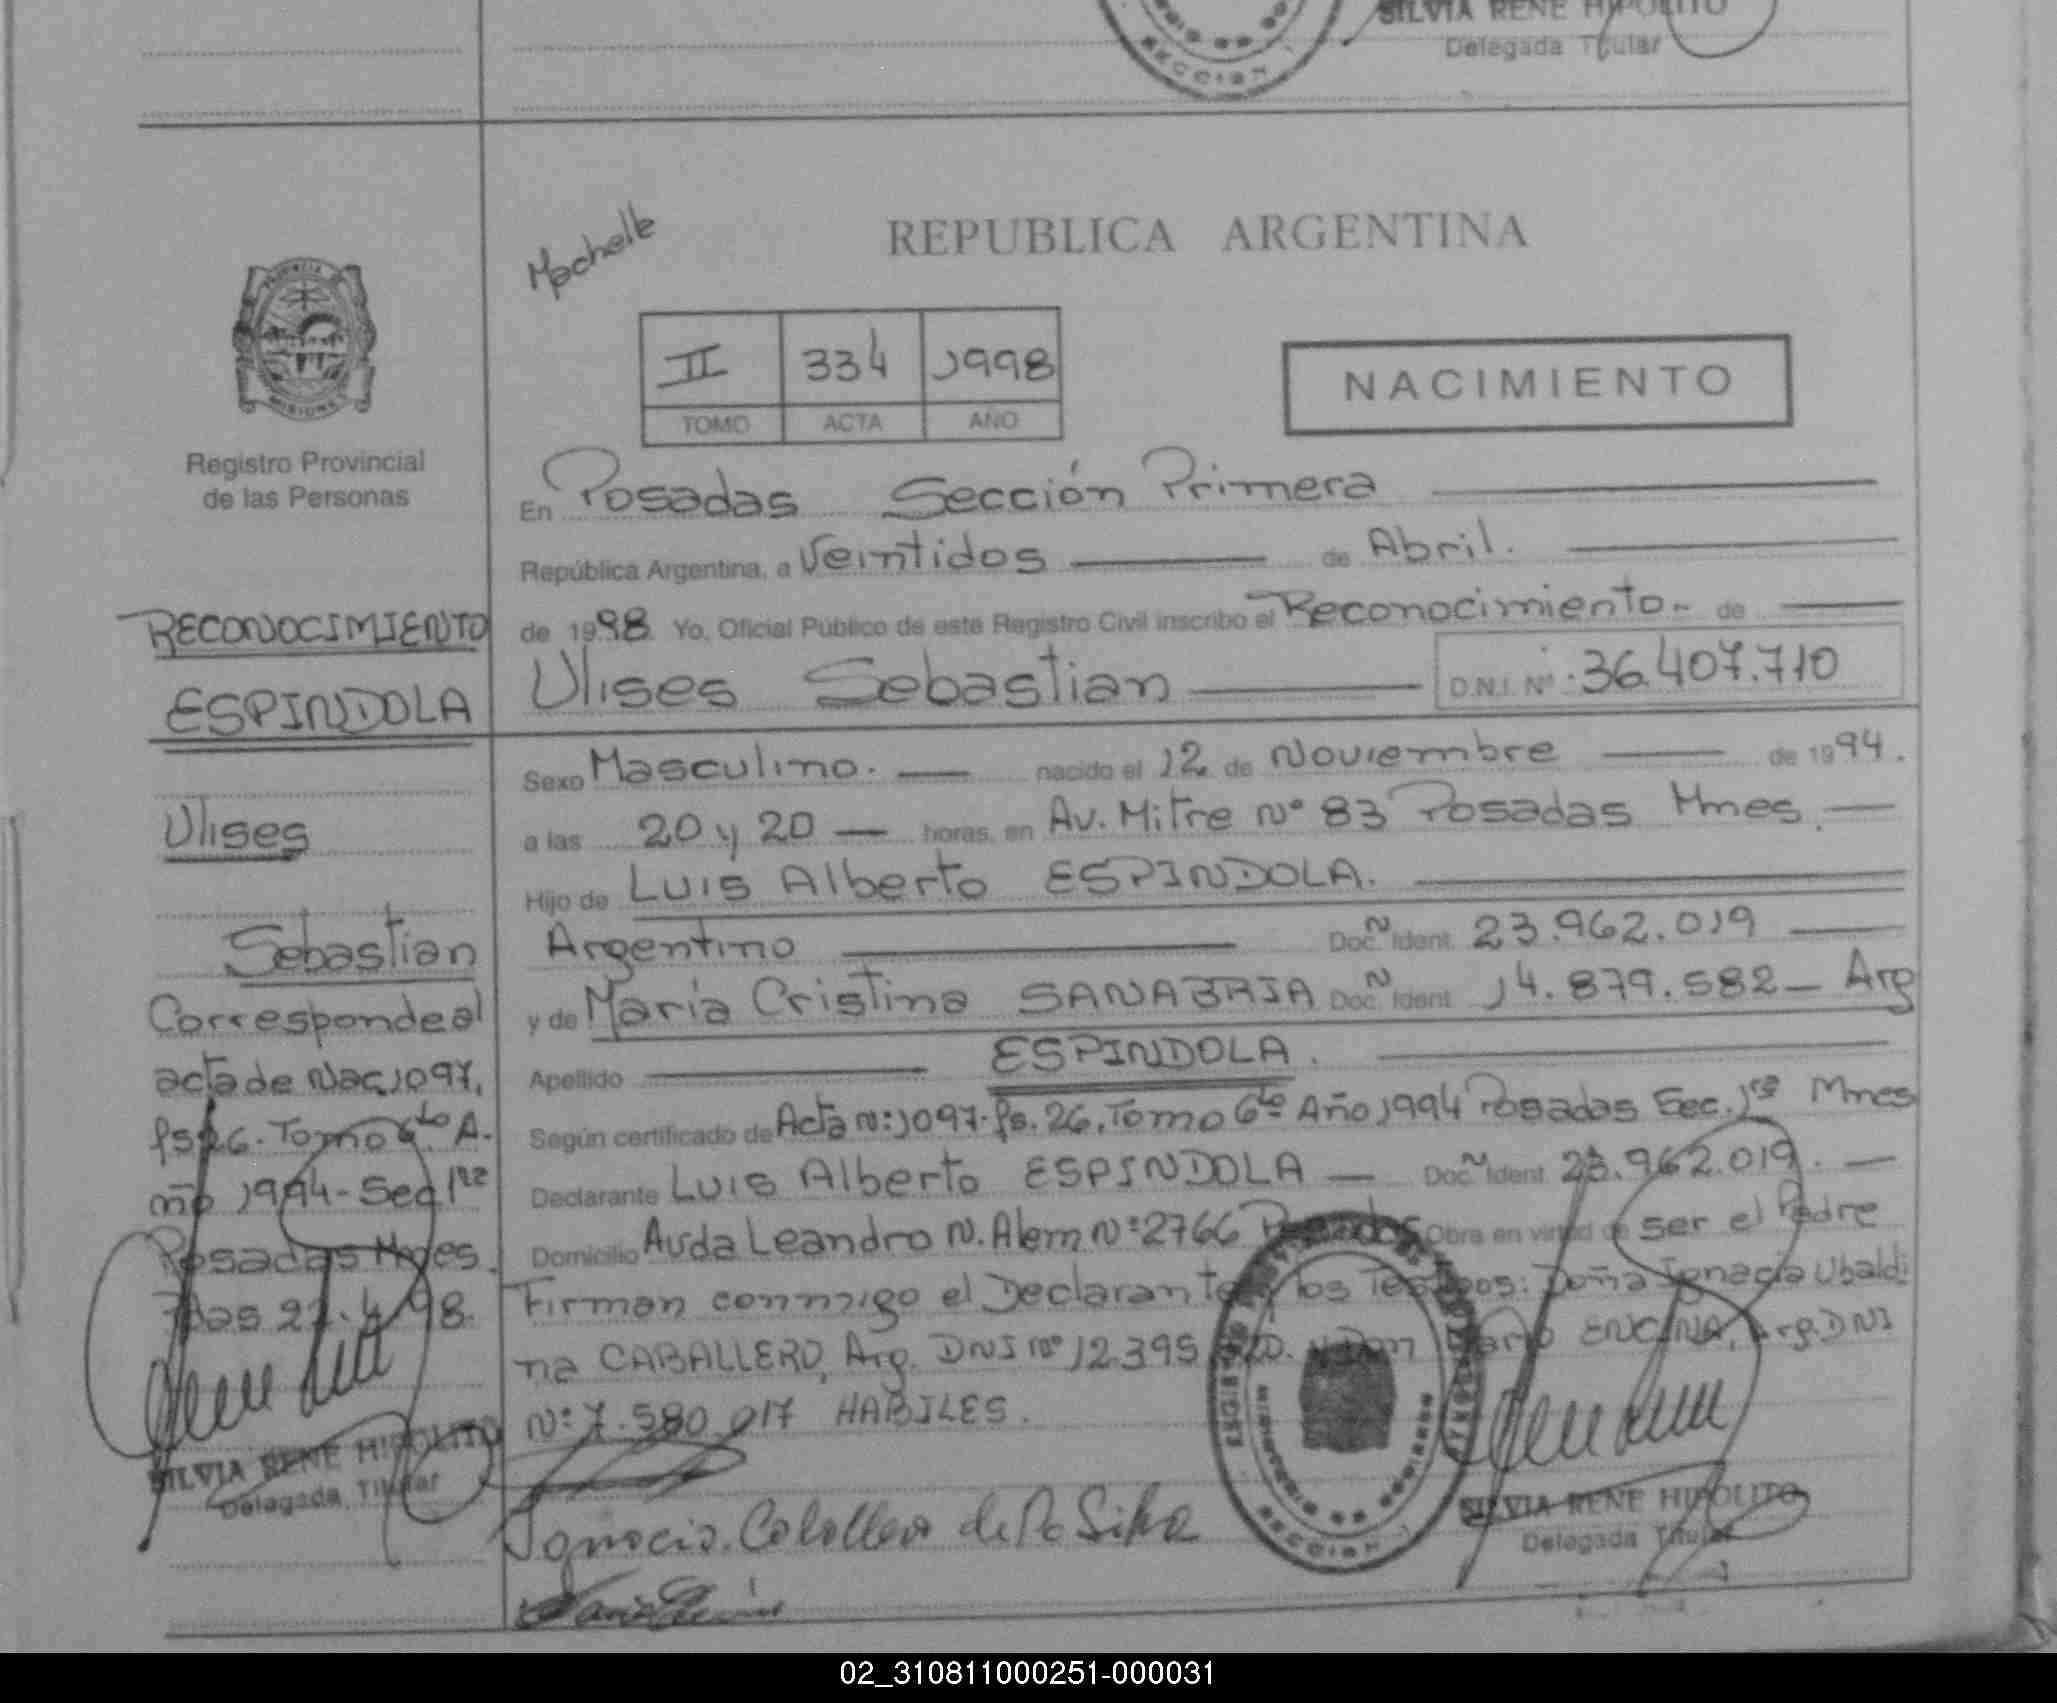 SILVIA RENE HIPOLITO
Delegada Titular
SECCION
Machelk
REPUBLICA ARGENTINA
PROVINCIA
MISIONES
II 334 1998
TOMO ACTA AÑO
NACIMIENTO
Registro Provincial
de las Personas
En Posadas Sección Primera
República Argentina, a Veintidos de Abril.
de 1998. Yo, Oficial Público de este Registro Civil inscribo el Reconocimiento.- de
Ulises Sebastian D.N.I. Nº 36.407.710
Sexo Masculino. nacido el 12 de Noviembre de 1994.
a las 20 y 20 horas, en Av. Mitre Nº 83 Posadas Mnes.
Hijo de Luis Alberto ESPINDOLA.
Argentino Doc. Ident. 23.962.019
y de María Cristina SANABRIA Doc. Ident. 14.879.582 Arg
Apellido ESPINDOLA.
Según certificado de Acta Nº: 1097. fs. 26. Tomo 6to Año 1994 Posadas Sec. 1ra Mnes
Declarante Luis Alberto ESPINDOLA Doc. Ident. 23.962.019.
Domicilio Avda Leandro N. Alem Nº 2766 Posadas Obra en virtud de ser el Padre
Firman conmigo el Declarante y los Testigos: Doña Ignacia Ubaldi
na CABALLERO, Arg. DNI Nº 12.395 y Don ENCINA, Arg. DNI
Nº 7.580.017 HABILES.
RECONOCIMIENTO
ESPINDOLA
Ulises
Sebastian
Corresponde al
acta de Nac. 1097,
fs 26. Tomo 6to A-
ño 1994- Sec. 1ra
Posadas Mnes.
Pdas 22.4.98.
SILVIA RENE HIPOLITO
Delegada Titular
Ignacia. Caballero de Da Silva
SECCION
SILVIA RENE HIPOLITO
Delegada Titular
02_310811000251-000031